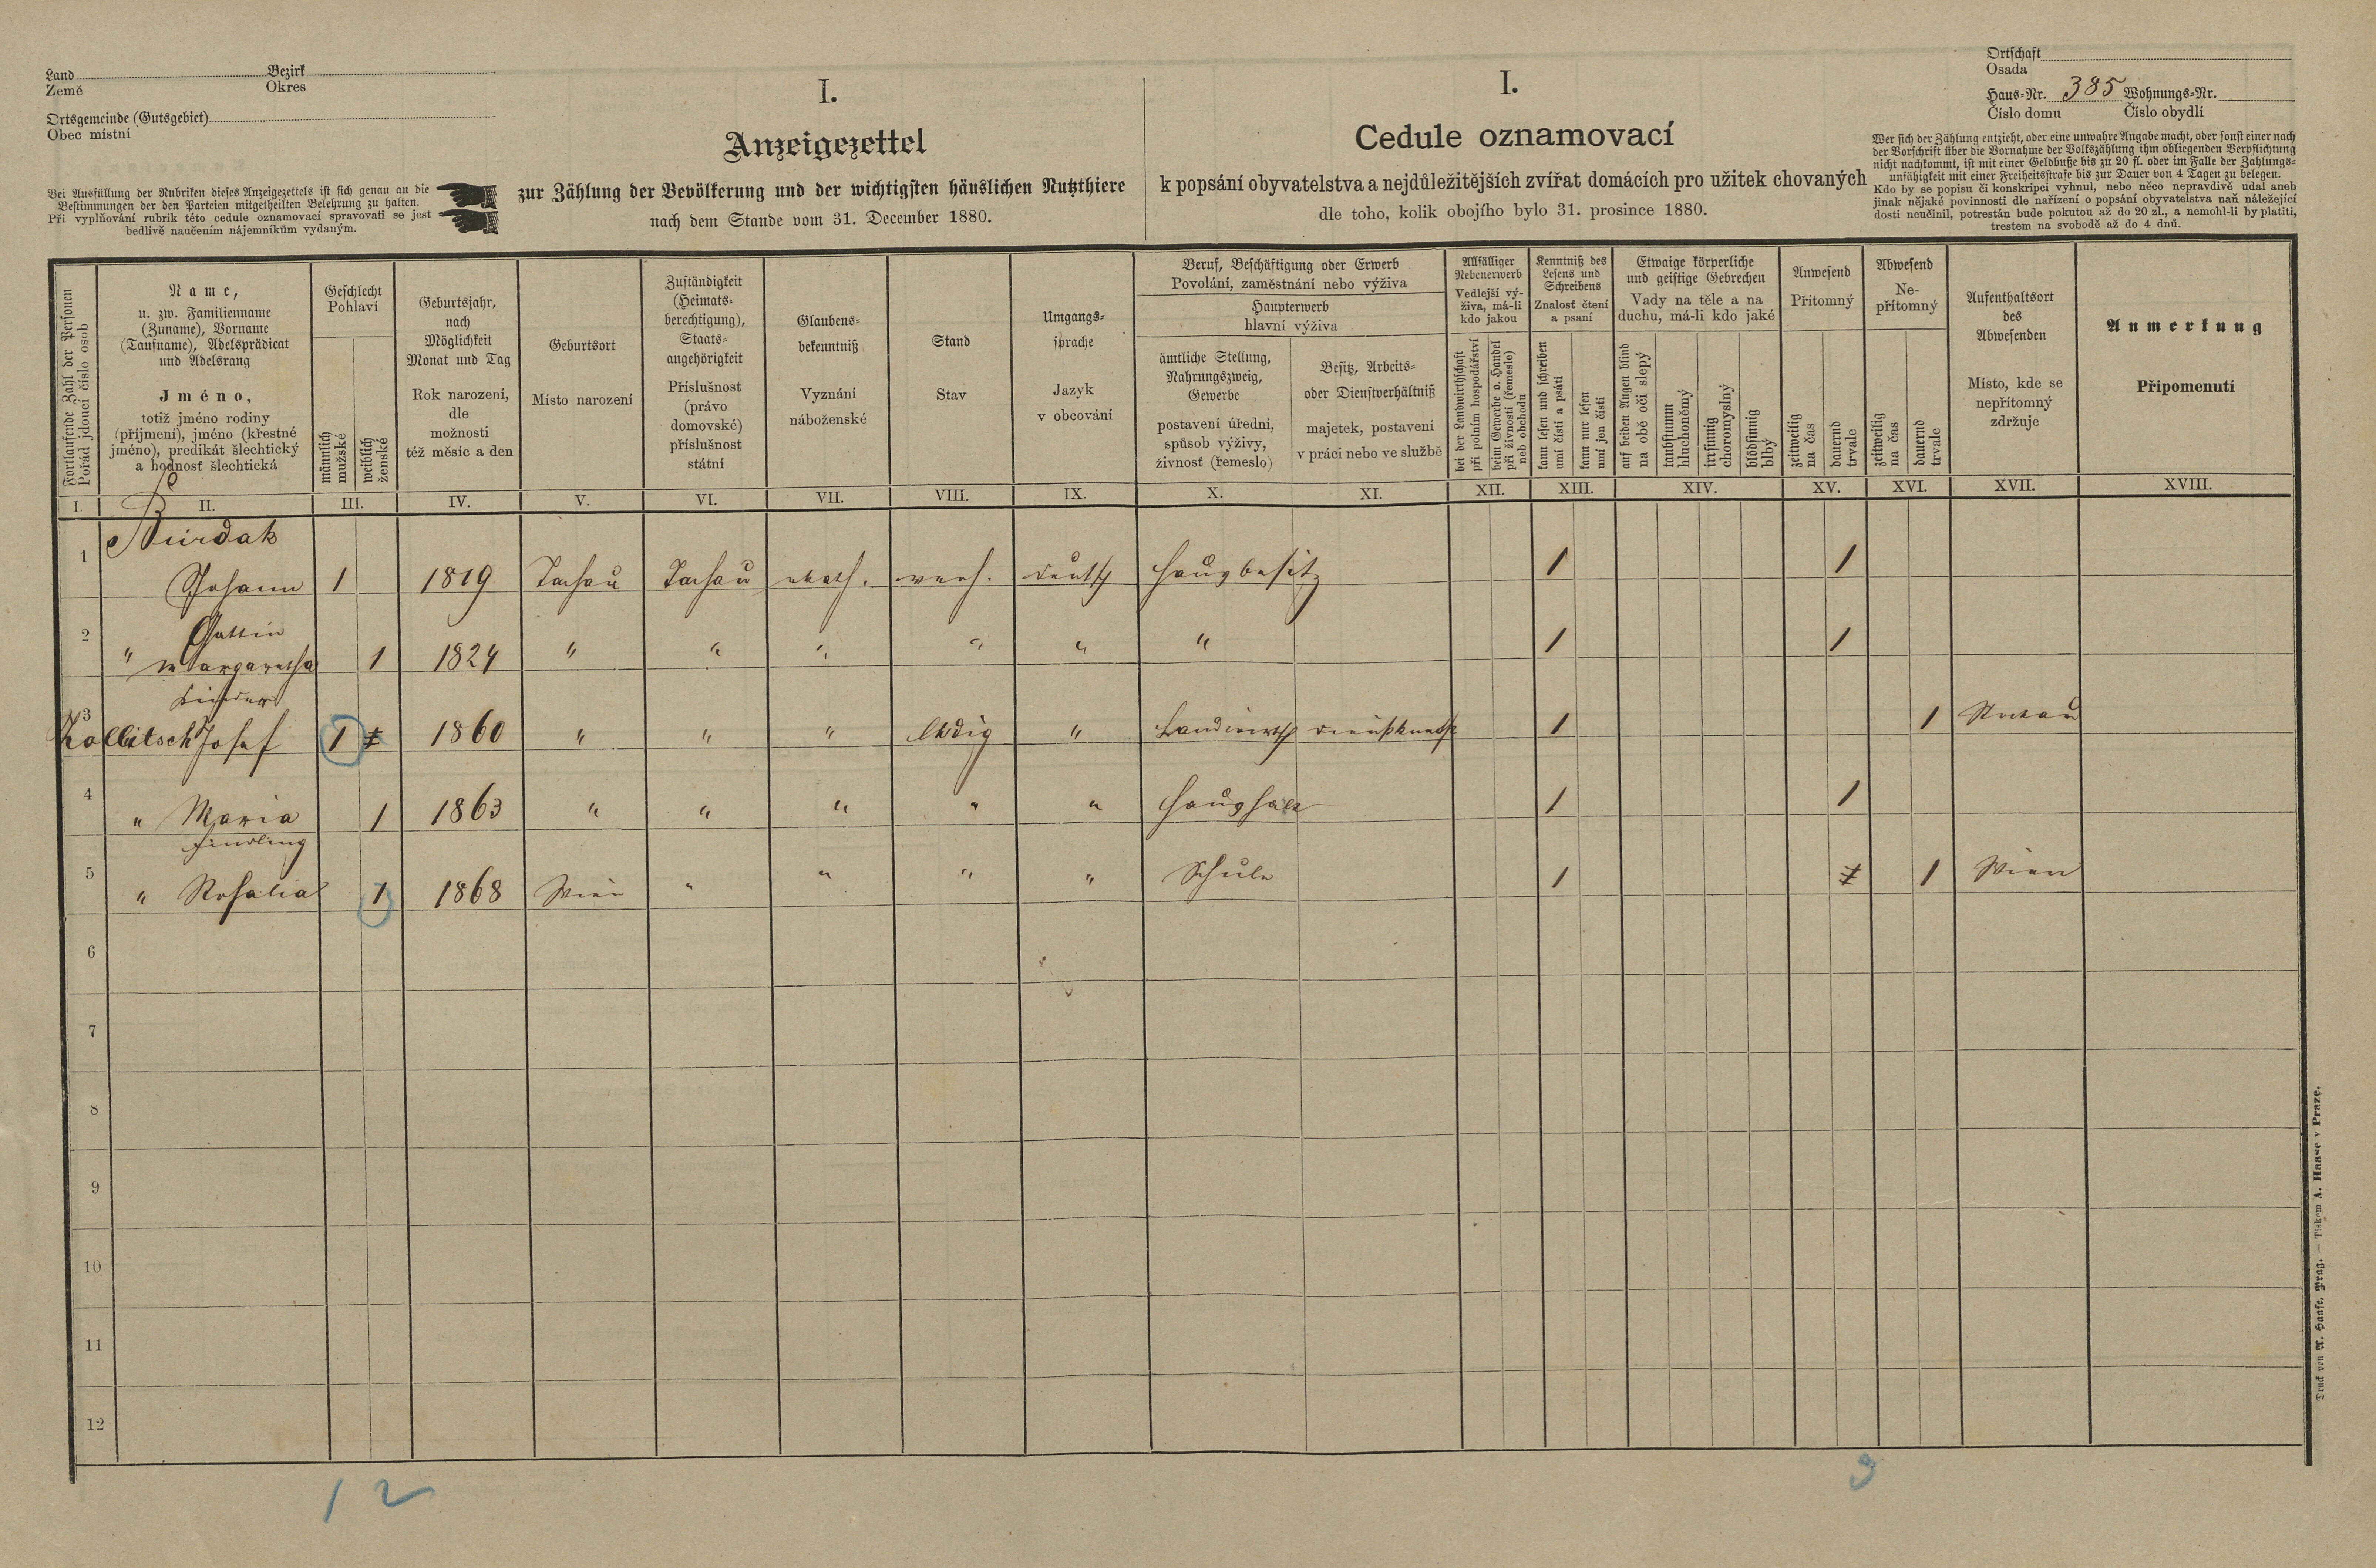 Land Bezirk
Země Okres
Ortsgemeinde (Gutsgebiet)
Obec místní
Bei Ausfüllung der Rubriken dieses Anzeigezettels ist sich genau an die
Bestimmungen der den Parteien mitgetheilten Belehrung zu halten.
Při vyplňování rubrik této cedule oznamovací spravovati se jest
bedlivě naučením nájemníkům vydaným.
I.
Anzeigezettel
zur Zählung der Bevölkerung und der wichtigsten häuslichen Nutzthiere
nach dem Stande vom 31. December 1880.
I.
Cedule oznamovací
k popsání obyvatelstva a nejdůležitějších zvířat domácích pro užitek chovaných
dle toho, kolik obojího bylo 31. prosince 1880.
Ortschaft
Osada
Haus-Nr. 385 Wohnungs-Nr.
Číslo domu Číslo obydlí
Wer sich der Zählung entzieht, oder eine unwahre Angabe macht, oder sonst einer nach
der Vorschrift über die Vornahme der Volkszählung ihm obliegenden Verpflichtung
nicht nachkommt, ist mit einer Geldbuße bis zu 20 fl. oder im Falle der Zahlungs-
unfähigkeit mit einer Freiheitsstrafe bis zur Dauer von 4 Tagen zu belegen.
Kdo by se popisu či konskripci vyhnul, nebo něco nepravdivě udal aneb
jinak nějaké povinnosti dle nařízení o popsání obyvatelstva naň náležející
dosti neučinil, potrestán bude pokutou až do 20 zl., a nemohl-li by platiti,
trestem na svobodě až do 4 dnů.
Fortlaufende Zahl der Personen
Pořád jdoucí číslo osob
Name,
u. zw. Familienname
(Zuname), Vorname
(Taufname), Adelsprädicat
und Adelsrang
Jméno,
totiž jméno rodiny
(příjmení), jméno (křestné
jméno), predikát šlechtický
a hodnosť šlechtická
Geschlecht
Pohlaví
männlich
mužské
weiblich
ženské
Geburtsjahr,
nach
Möglichkeit
Monat und Tag
Rok narození,
dle
možnosti
též měsíc a den
Geburtsort
Místo narození
Zuständigkeit
(Heimats-
berechtigung),
Staats-
angehörigkeit
Příslušnost
(právo
domovské)
příslušnost
státní
Glaubens-
bekenntniß
Vyznání
náboženské
Stand
Stav
Umgangs-
sprache
Jazyk
v obcování
Beruf, Beschäftigung oder Erwerb
Povolání, zaměstnání nebo výživa
Haupterwerb
hlavní výživa
ämtliche Stellung,
Nahrungszweig,
Gewerbe
postavení úřední,
spůsob výživy,
živnosť (řemeslo)
Besitz, Arbeits-
oder Dienstverhältniß
majetek, postavení
v práci nebo ve službě
Allfälliger
Nebenerwerb
Vedlejší vý-
živa, má-li
kdo jakou
bei der Landwirthschaft
při polním hospodářství
beim Gewerbe o. Handel
při živnosti (řemesle)
neb obchodu
Kenntniß des
Lesens und
Schreibens
Znalosť čtení
a psaní
kann lesen und schreiben
umí čísti a psáti
kann nur lesen
umí jen čísti
Etwaige körperliche
und geistige Gebrechen
Vady na těle a na
duchu, má-li kdo jaké
auf beiden Augen blind
na obě oči slepý
taubstumm
hluchoněmý
irrsinnig
choromyslný
blödsinnig
blbý
Anwesend
Přítomný
zeitweilig
na čas
dauernd
trvale
Abwesend
Ne-
přítomný
zeitweilig
na čas
dauernd
trvale
Aufenthaltsort
des
Abwesenden
Místo, kde se
nepřítomný
zdržuje
Anmerkung
Připomenutí
I. II. III. IV. V. VI. VII. VIII. IX. X. XI. XII. XIII. XIV. XV. XVI. XVII. XVIII.
1 Burdak
Johann 1 1819 Tachau Tachau kath. verh. deutsch Hausbesitz 1 1
2 Gattin
" Margaretha 1 1824 " " " " " " 1 1
Kinder
3 Kollitsch Josef 1 1 1860 " " " ledig " Landwirth Dienstknecht 1 1
4 " Maria 1 1863 " " " " " Haushält 1 1
Findling
5 " Rosalia 1 1868 Wien " " " " Schule 1 1 1 Wien
6
7
8
9
10
11
12
1 2 3
Druck von A. Haase, Prag. — Tiskem A. Haase v Praze.